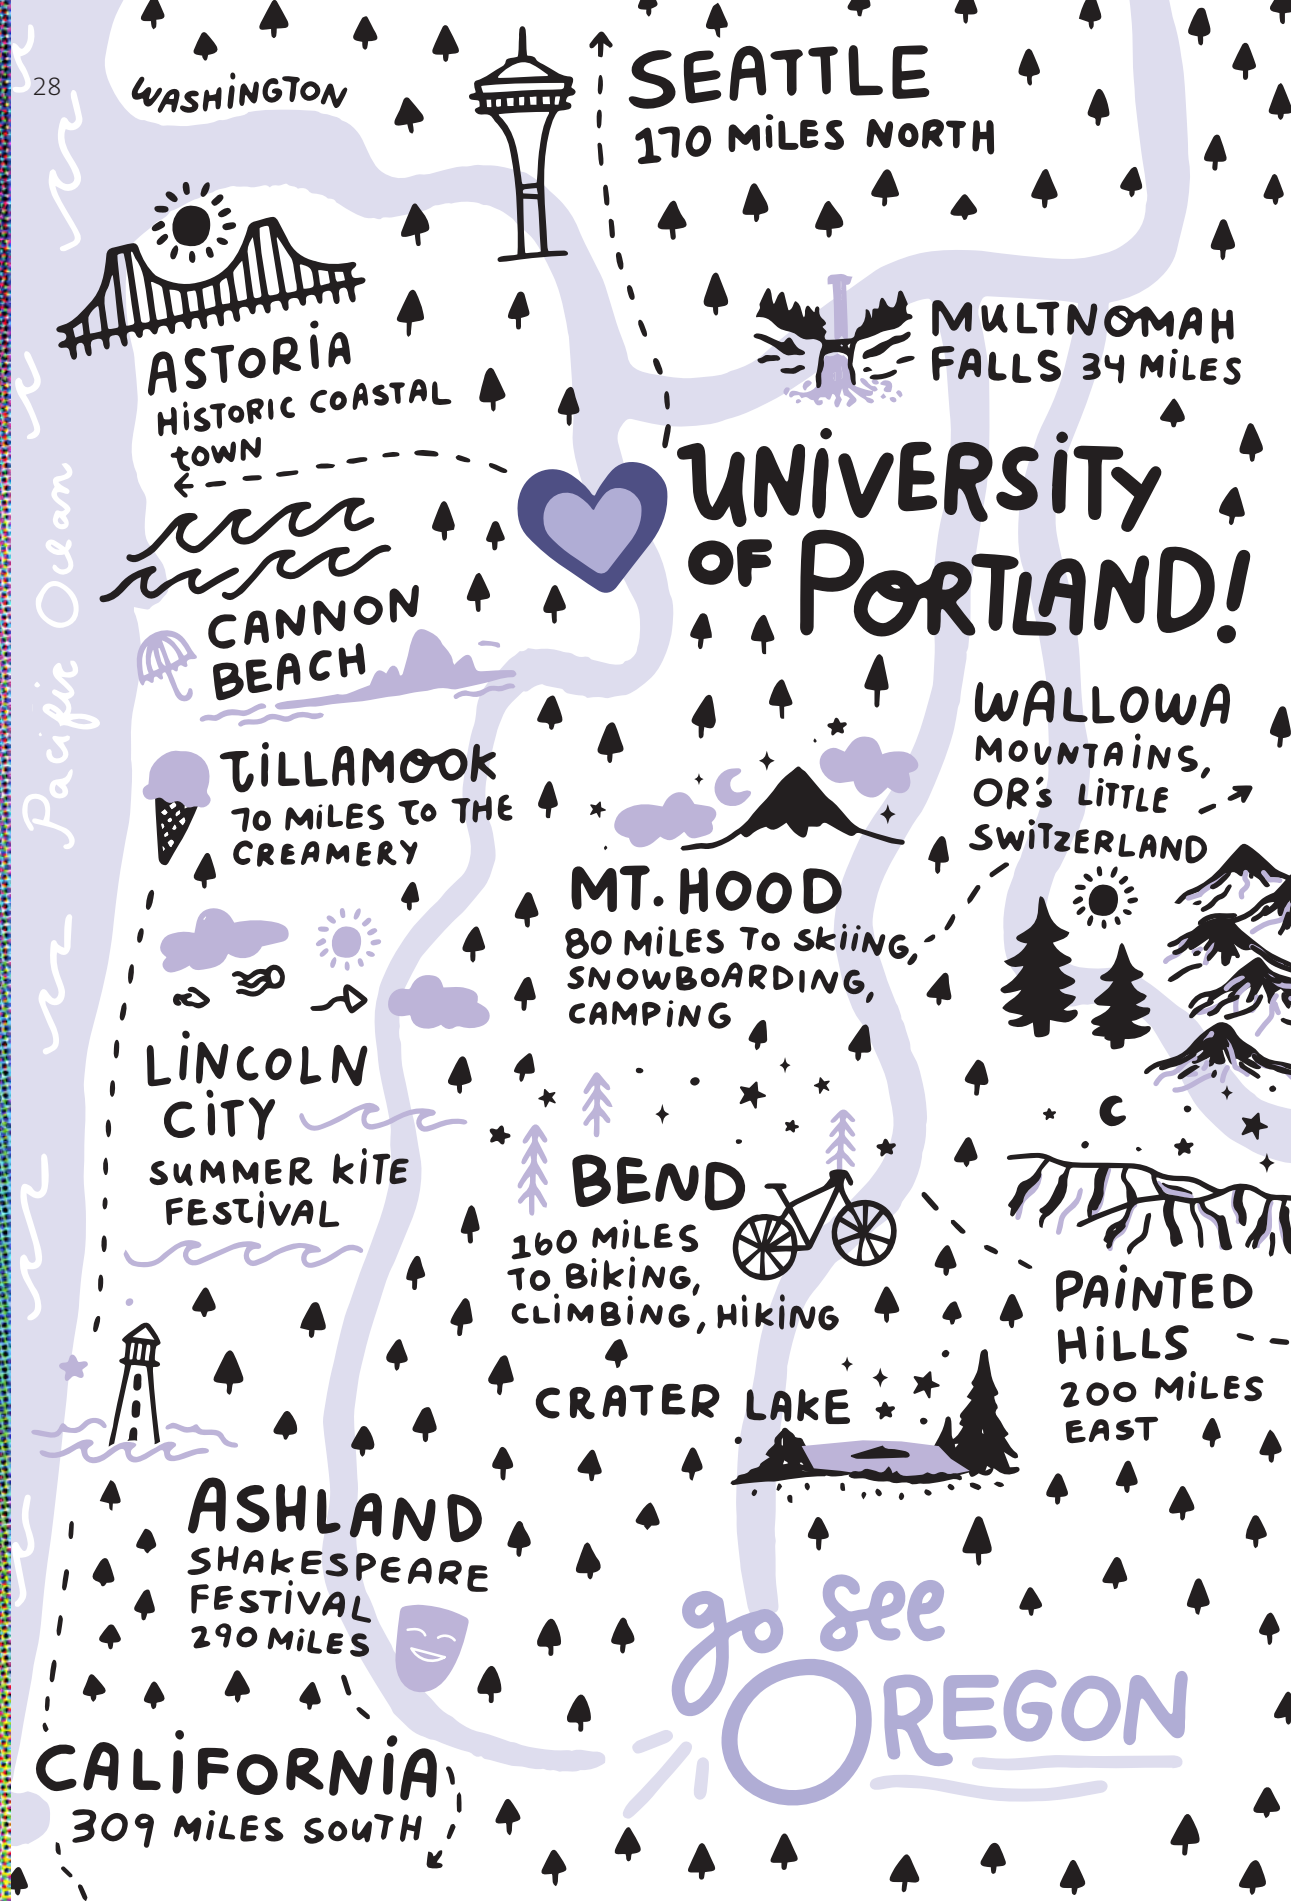 28
WASHiNGTON
SEATTLE
170 MiLES NORTH
ASTORiA
HiSTORIC COASTAL
tOWN
MULTNOMAH
FALLS 34 MiLES
UNiVERSiTy
OF PORTLAND!
Pacific Ocean
CANNON
BEACH
TiLLAMOOK
70 MiLES TO THE
CREAMERY
WALLOWA
MOUNTAiNS,
OR's LiTTLE
SWiTZERLAND
MT. HOOD
80 MiLES TO SkiiNG,
SNOWBOARDING,
CAMPiNG
LiNCOLN
CiTY
SUMMER KiTE
FESTiVAL
BEND
160 MiLES
TO BiKiNG,
CLiMBING, HiKING
PAiNTED
HiLLS
200 MiLES
EAST
CRATER LAKE
ASHLAND
SHAKESPEARE
FESTiVAL
290 MiLES
go see
OREGON
CALiFORNiA
309 MiLES SOUTH